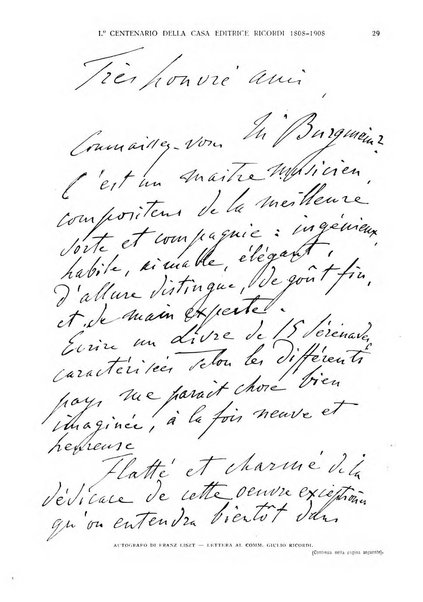 I.º CENTENARIO DELLA CASA EDITRICE RICORDI 1808-1908 29
Très honoré ami,
Connaissez-vous Mr Burgmein?
C'est un maitre musicien,
compositeur de la meilleure
sorte et compagnie: ingénieux,
habile, aimable, élégant,
d'allure distinguée, de goût fin,
et de main experte.
Ecrire un Livre de 15 Sérénades
caractérisées selon les différents
pays me parait chose bien
imaginée, à la fois neuve et
heureuse
Flatté et charmé de la
dédicace de cette oeuvre exceptionnelle
qu'on entendra bientôt dans
AUTOGRAFO DI FRANZ LISZT — LETTERA AL COMM. GIULIO RICORDI.
(Continua nella pagina seguente).